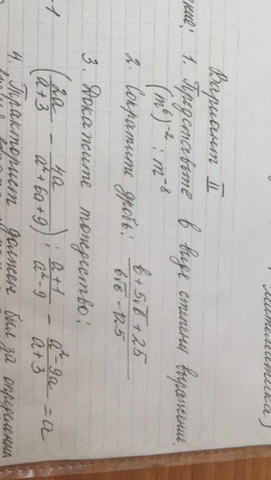 Вариант II
1. Представьте в виде степени выражение
(m⁶)⁻² : m⁻⁸
2. Сократите дробь: (b+5√b+25)/(b√b-125)
3. Докажите тождество:
(2a/(a+3) - 4a/(a²+6a+9)) : (a+1)/(a²-9) - (a²-9a)/(a+3) = a
4. Тракторист должен был за определенн